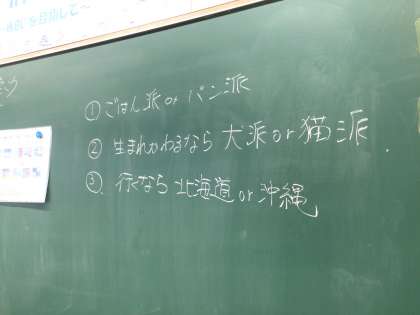 を目指して～
① ごはん派 or パン派
② 生まれかわるなら 犬派 or 猫派
③ 行くなら 北海道 or 沖縄